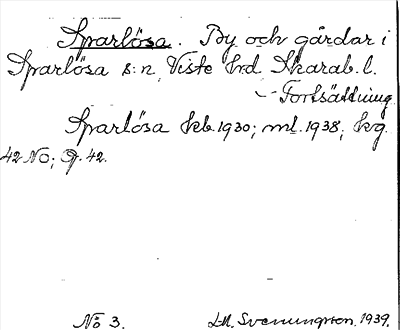 Sparlösa. By och gårdar i
Sparlösa s:n, Viste hrd, Skarab. l.
Fortsättning.
Sparlösa kb. 1930; ml. 1938; kg.
42 NO; G. 42.
No 3. L-M. Svenungson. 1939.